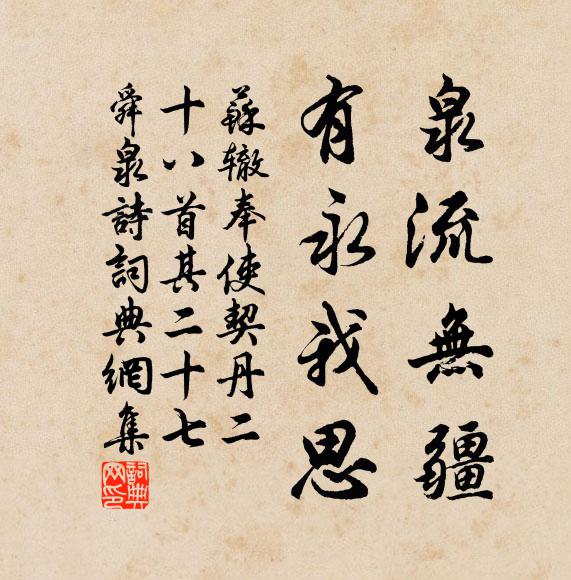 泉流無疆
有永我思
蘇轍奉使契丹二
十八首其二十七
舜泉詩詞典網集
詞典网印